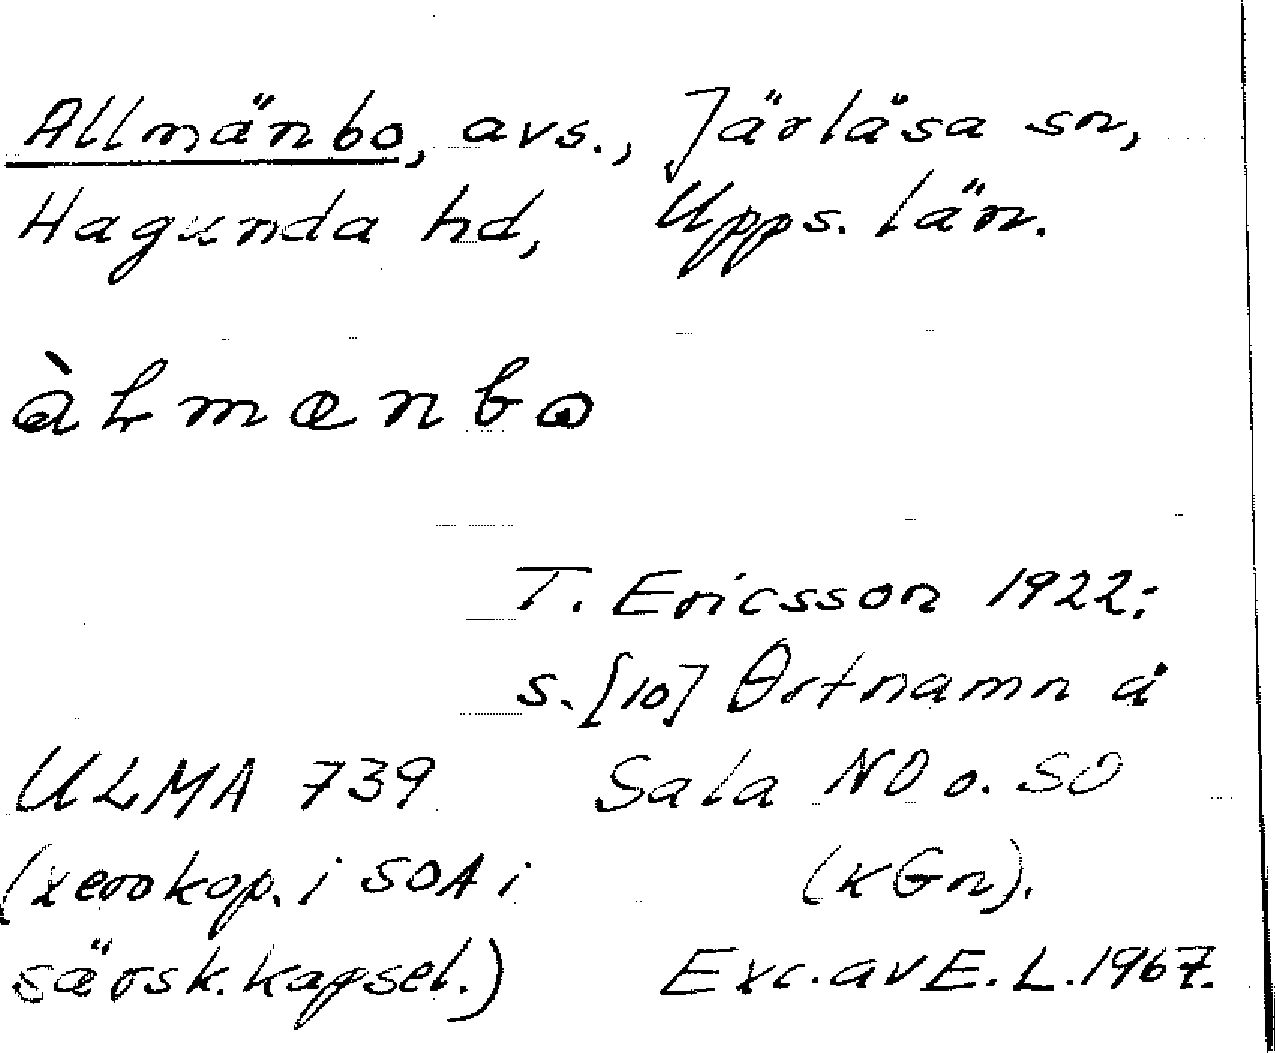 Allmänbo, avs., Järlåsa sn,
Hagunda hd, Upps. län.
àLmænbo
T. Ericsson 1922:
s. [10] Ortnamn å
ULMA 739 Sala NO o. SO
(xerokop. i SOA i (KGn).
särsk. kapsel.) Exc. av E. L. 1967.